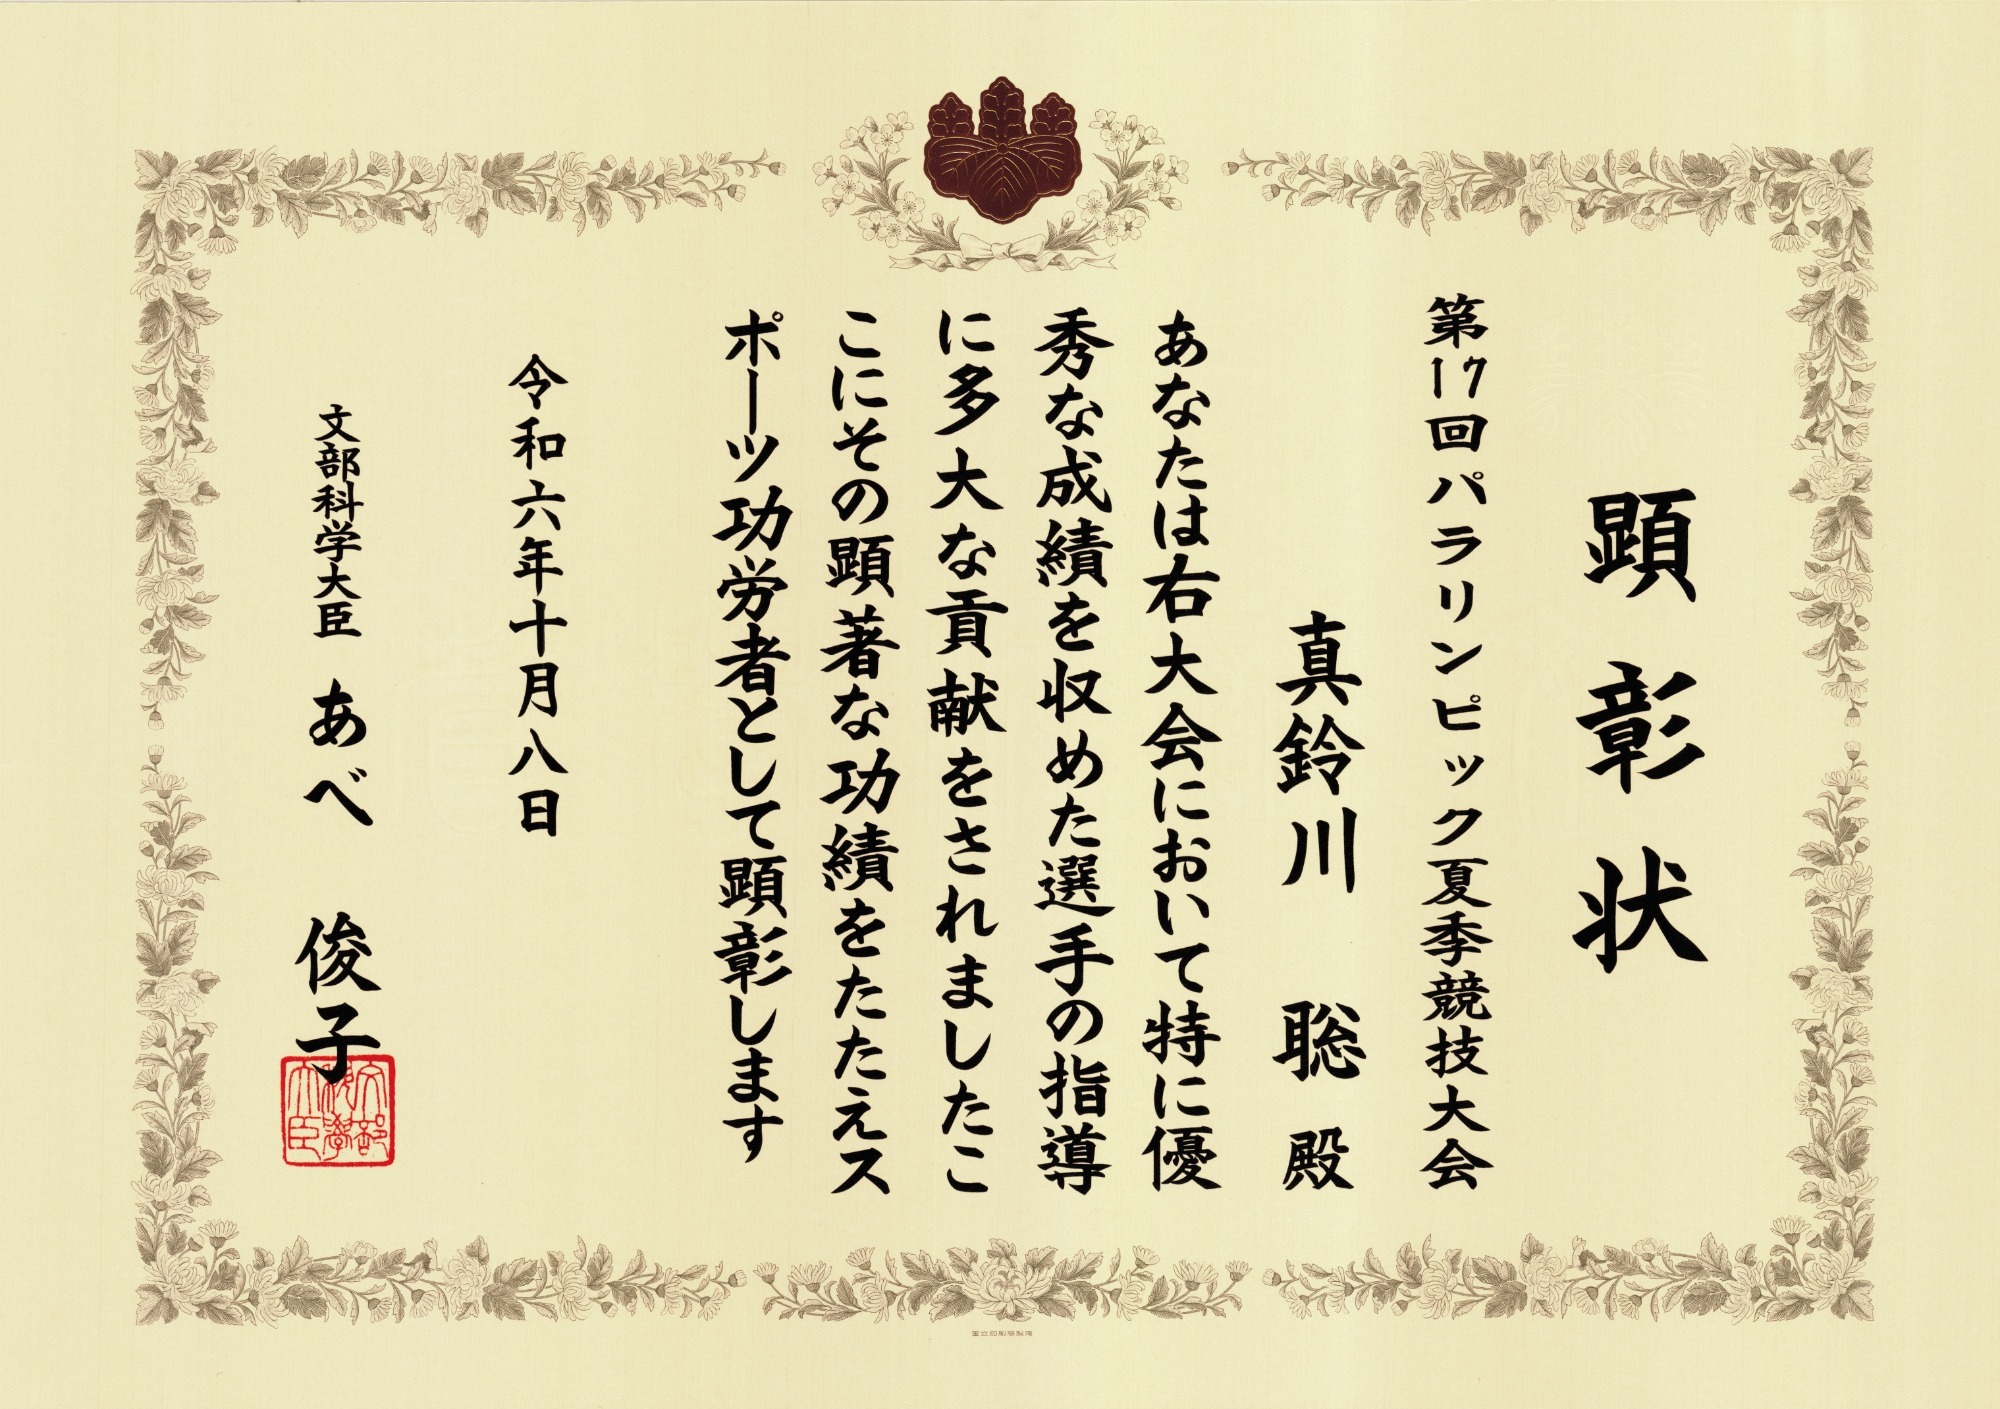 顕彰状
第17回パラリンピック夏季競技大会
真鈴川 聡 殿
あなたは右大会において特に優
秀な成績を収めた選手の指導
に多大な貢献をされましたこ
こにその顕著な功績をたたえス
ポーツ功労者として顕彰します
令和六年十月八日
文部科学大臣 あべ 俊子
文部
科學
大臣
国立印刷局製造